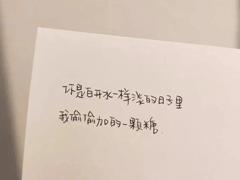 你是白开水一样淡的日子里
我偷偷加的一颗糖